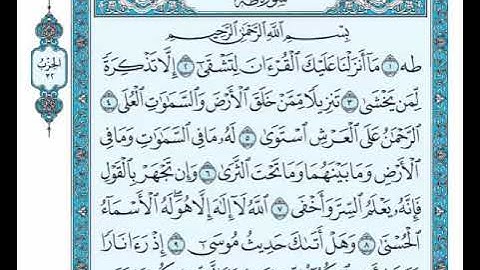 سورة طه
الحزب
٣٢
بِسْمِ ٱللَّهِ ٱلرَّحْمَٰنِ ٱلرَّحِيمِ
طه ١ مَآ أَنزَلْنَا عَلَيْكَ ٱلْقُرْءَانَ لِتَشْقَىٰٓ ٢ إِلَّا تَذْكِرَةً
لِّمَن يَخْشَىٰ ٣ تَنزِيلًا مِّمَّنْ خَلَقَ ٱلْأَرْضَ وَٱلسَّمَٰوَٰتِ ٱلْعُلَى ٤
ٱلرَّحْمَٰنُ عَلَى ٱلْعَرْشِ ٱسْتَوَىٰ ٥ لَهُۥ مَا فِى ٱلسَّمَٰوَٰتِ وَمَا فِى
ٱلْأَرْضِ وَمَا بَيْنَهُمَا وَمَا تَحْتَ ٱلثَّرَىٰ ٦ وَإِن تَجْهَرْ بِٱلْقَوْلِ
فَإِنَّهُۥ يَعْلَمُ ٱلسِّرَّ وَأَخْفَى ٧ ٱللَّهُ لَآ إِلَٰهَ إِلَّا هُوَ لَهُ ٱلْأَسْمَآءُ
ٱلْحُسْنَىٰ ٨ وَهَلْ أَتَىٰكَ حَدِيثُ مُوسَىٰٓ ٩ إِذْ رَءَا نَارًا